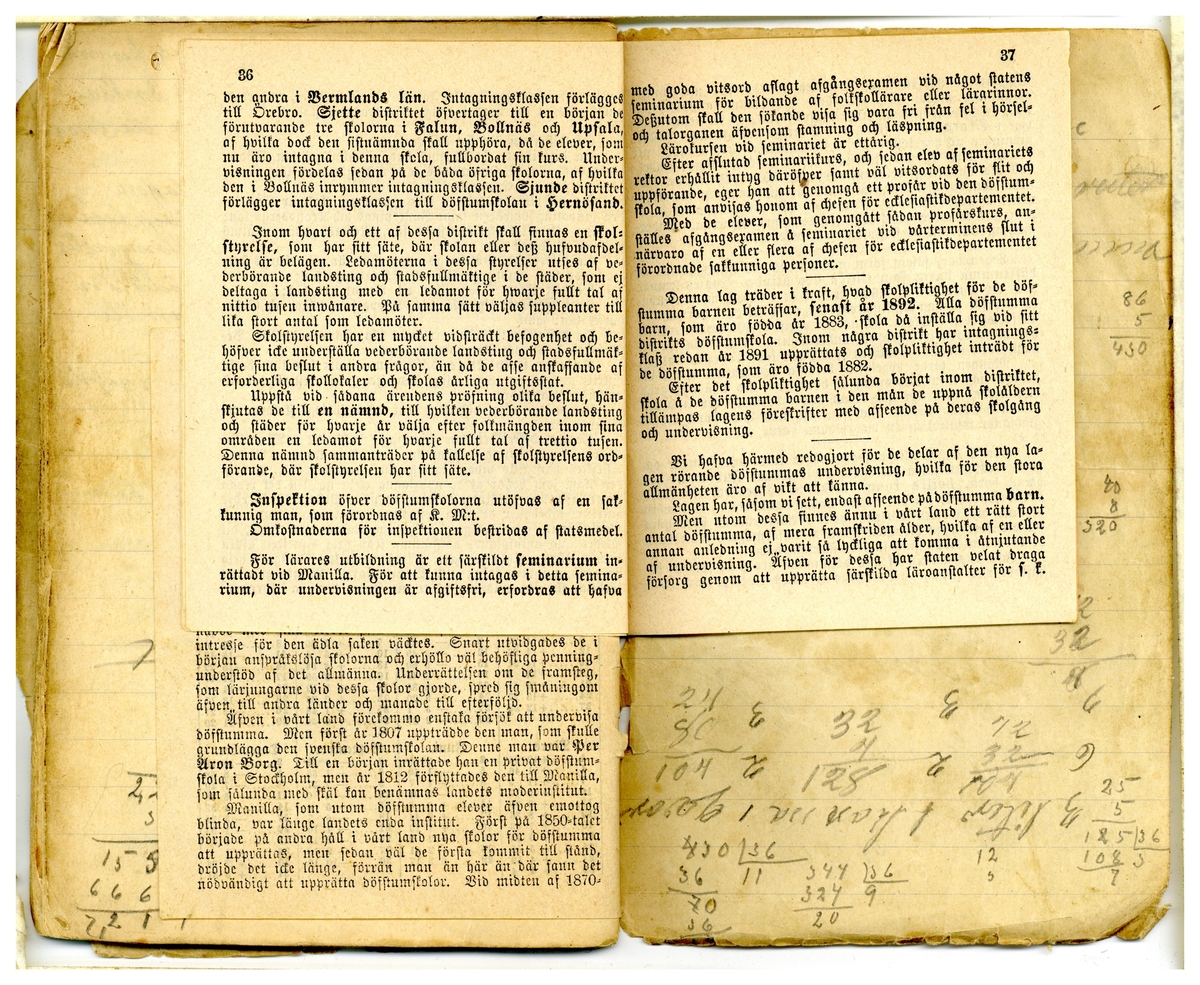 36
den andra i Vermlands län. Intagningsklassen förlägges
till Örebro. Sjette distriktet öfvertager till en början de
förutvarande tre skolorna i Falun, Bollnäs och Upsala,
af hvilka dock den sistnämnda skall upphöra, då de elever, som
nu äro intagna i denna skola, fullbordat sin kurs. Under-
visningen fördelas sedan på de båda öfriga skolorna, af hvilka
den i Bollnäs inrymmer intagningsklassen. Sjunde distriktet
förlägger intagningsklassen till döfstumskolan i Hernösand.
Inom hvart och ett af dessa distrikt skall finnas en skol-
styrelse, som har sitt säte, där skolan eller deß hufvudafdel-
ning är belägen. Ledamöterna i dessa styrelser utses af ve-
derbörande landsting och stadsfullmäktige i de städer, som ej
deltaga i landsting med en ledamot för hwarje fullt tal af
nittio tusen inwånare. På samma sätt väljas suppleanter till
lika stort antal som ledamöter.
Skolstyrelsen har en mycket vidsträckt befogenhet och be-
höfver icke underställa vederbörande landsting och stadsfullmäk-
tige sina beslut i andra frågor, än då de afse anskaffande af
erforderliga skollokaler och skolas årliga utgiftsstat.
Uppstå vid sådana ärendens pröfning olika beslut, hän-
skjutas de till en nämnd, till hvilken vederbörande landsting
och städer för hvarje år välja efter folkmängden inom sina
områden en ledamot för hvarje fullt tal af trettio tusen.
Denna nämnd sammanträder på kallelse af skolstyrelsens ord-
förande, där skolstyrelsen har sitt säte.
Inspektion öfver döfstumskolorna utöfvas af en sak-
kunnig man, som förordnas af K. M:t.
Omkostnaderna för inspektionen bestridas af statsmedel.
För lärares utbildning är ett särskildt seminarium in-
rättadt vid Manilla. För att kunna intagas i detta semina-
rium, där undervisningen är afgiftsfri, erfordras att hafva
intresse för den ädla saken väcktes. Snart utvidgades de i
början anspråkslösa skolorna och erhöllo väl behöfliga penning-
understöd af det allmänna. Underrättelsen om de framsteg,
som lärjungarne vid dessa skolor gjorde, spred sig småningom
äfven till andra länder och manade till efterföljd.
Äfven i vårt land förekommo enstaka försök att undervisa
döfstumma. Men först år 1807 uppträdde den man, som skulle
grundlägga den svenska döfstumskolan. Denne man var Per
Aron Borg. Till en början inrättade han en privat döfstum-
skola i Stockholm, men år 1812 förflyttades den till Manilla,
som sålunda med skäl kan benämnas landets moderinstitut.
Manilla, som utom döfstumma elever äfven emottog
blinda, var länge landets enda institut. Först på 1850-talet
började på andra håll i vårt land nya skolor för döfstumma
att upprättas, men sedan väl de första kommit till stånd,
dröjde det icke länge, förrän man än här än där fann det
nödvändigt att upprätta döfstumskolor. Vid midten af 1870-
37
med goda vitsord aflagt afgångsexamen vid något statens
seminarium för bildande af folkskollärare eller lärarinnor.
Deßutom skall den sökande visa sig vara fri från fel i hörsel-
och talorganen äfvensom stamning och läspning.
Lärokursen vid seminariet är ettårig.
Efter afslutad seminariikurs, och sedan elev af seminariets
rektor erhållit intyg däröfver samt väl vitsordats för flit och
uppförande, eger han att genomgå ett profår vid den döfstum-
skola, som anvisas honom af chefen för ecklesiastikdepartementet.
Med de elever, som genomgått sådan profårskurs, an-
ställes afgångsexamen å seminariet vid vårterminens slut i
närvaro af en eller flera af chefen för ecklesiastikdepartementet
förordnade sakkunniga personer.
Denna lag träder i kraft, hvad skolpliktighet för de döf-
stumma barnen beträffar, senast år 1892. Alla döfstumma
barn, som äro födda år 1883, skola då inställa sig vid sitt
distrikts döfstumskola. Inom några distrikt har intagnings-
klaß redan år 1891 upprättats och skolpliktighet inträdt för
de döfstumma, som äro födda 1882.
Efter det skolpliktighet sålunda börjat inom distriktet,
skola å de döfstumma barnen i den mån de uppnå skolåldern
tillämpas lagens föreskrifter med afseende på deras skolgång
och undervisning.
Vi hafva härmed redogjort för de delar af den nya la-
gen rörande döfstummas undervisning, hvilka för den stora
allmänheten äro af vikt att känna.
Lagen har, såsom vi sett, endast afseende på döfstumma barn.
Men utom dessa finnes ännu i vårt land ett rätt stort
antal döfstumma, af mera framskriden ålder, hvilka af en eller
annan anledning ej varit så lyckliga att komma i åtnjutande
af undervisning. Äfven för dessa har staten velat draga
försorg genom att upprätta särskilda läroanstalter för s. k.
86
5
430
40
8
320
32
25
5
125|36
108 3
7
830|36
36 11
70
36
344|36
324 9
20
12
3
15 5
6 6 6